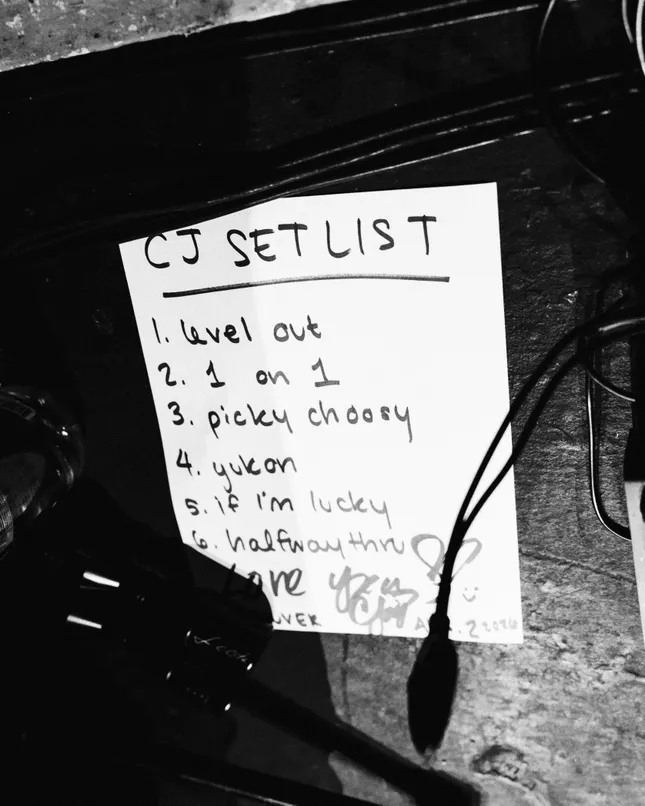 CJ SET LIST
1. level out
2. 1 on 1
3. picky choosy
4. yukon
5. if I'm lucky
6. halfway thru
Love you
2 2026